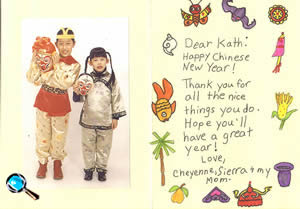 Dear Kath:
Happy Chinese
New Year!
Thank you for
all the nice
things you do.
Hope you'll
have a great
year!
Love,
Cheyenne, Sierra & my
Mom.